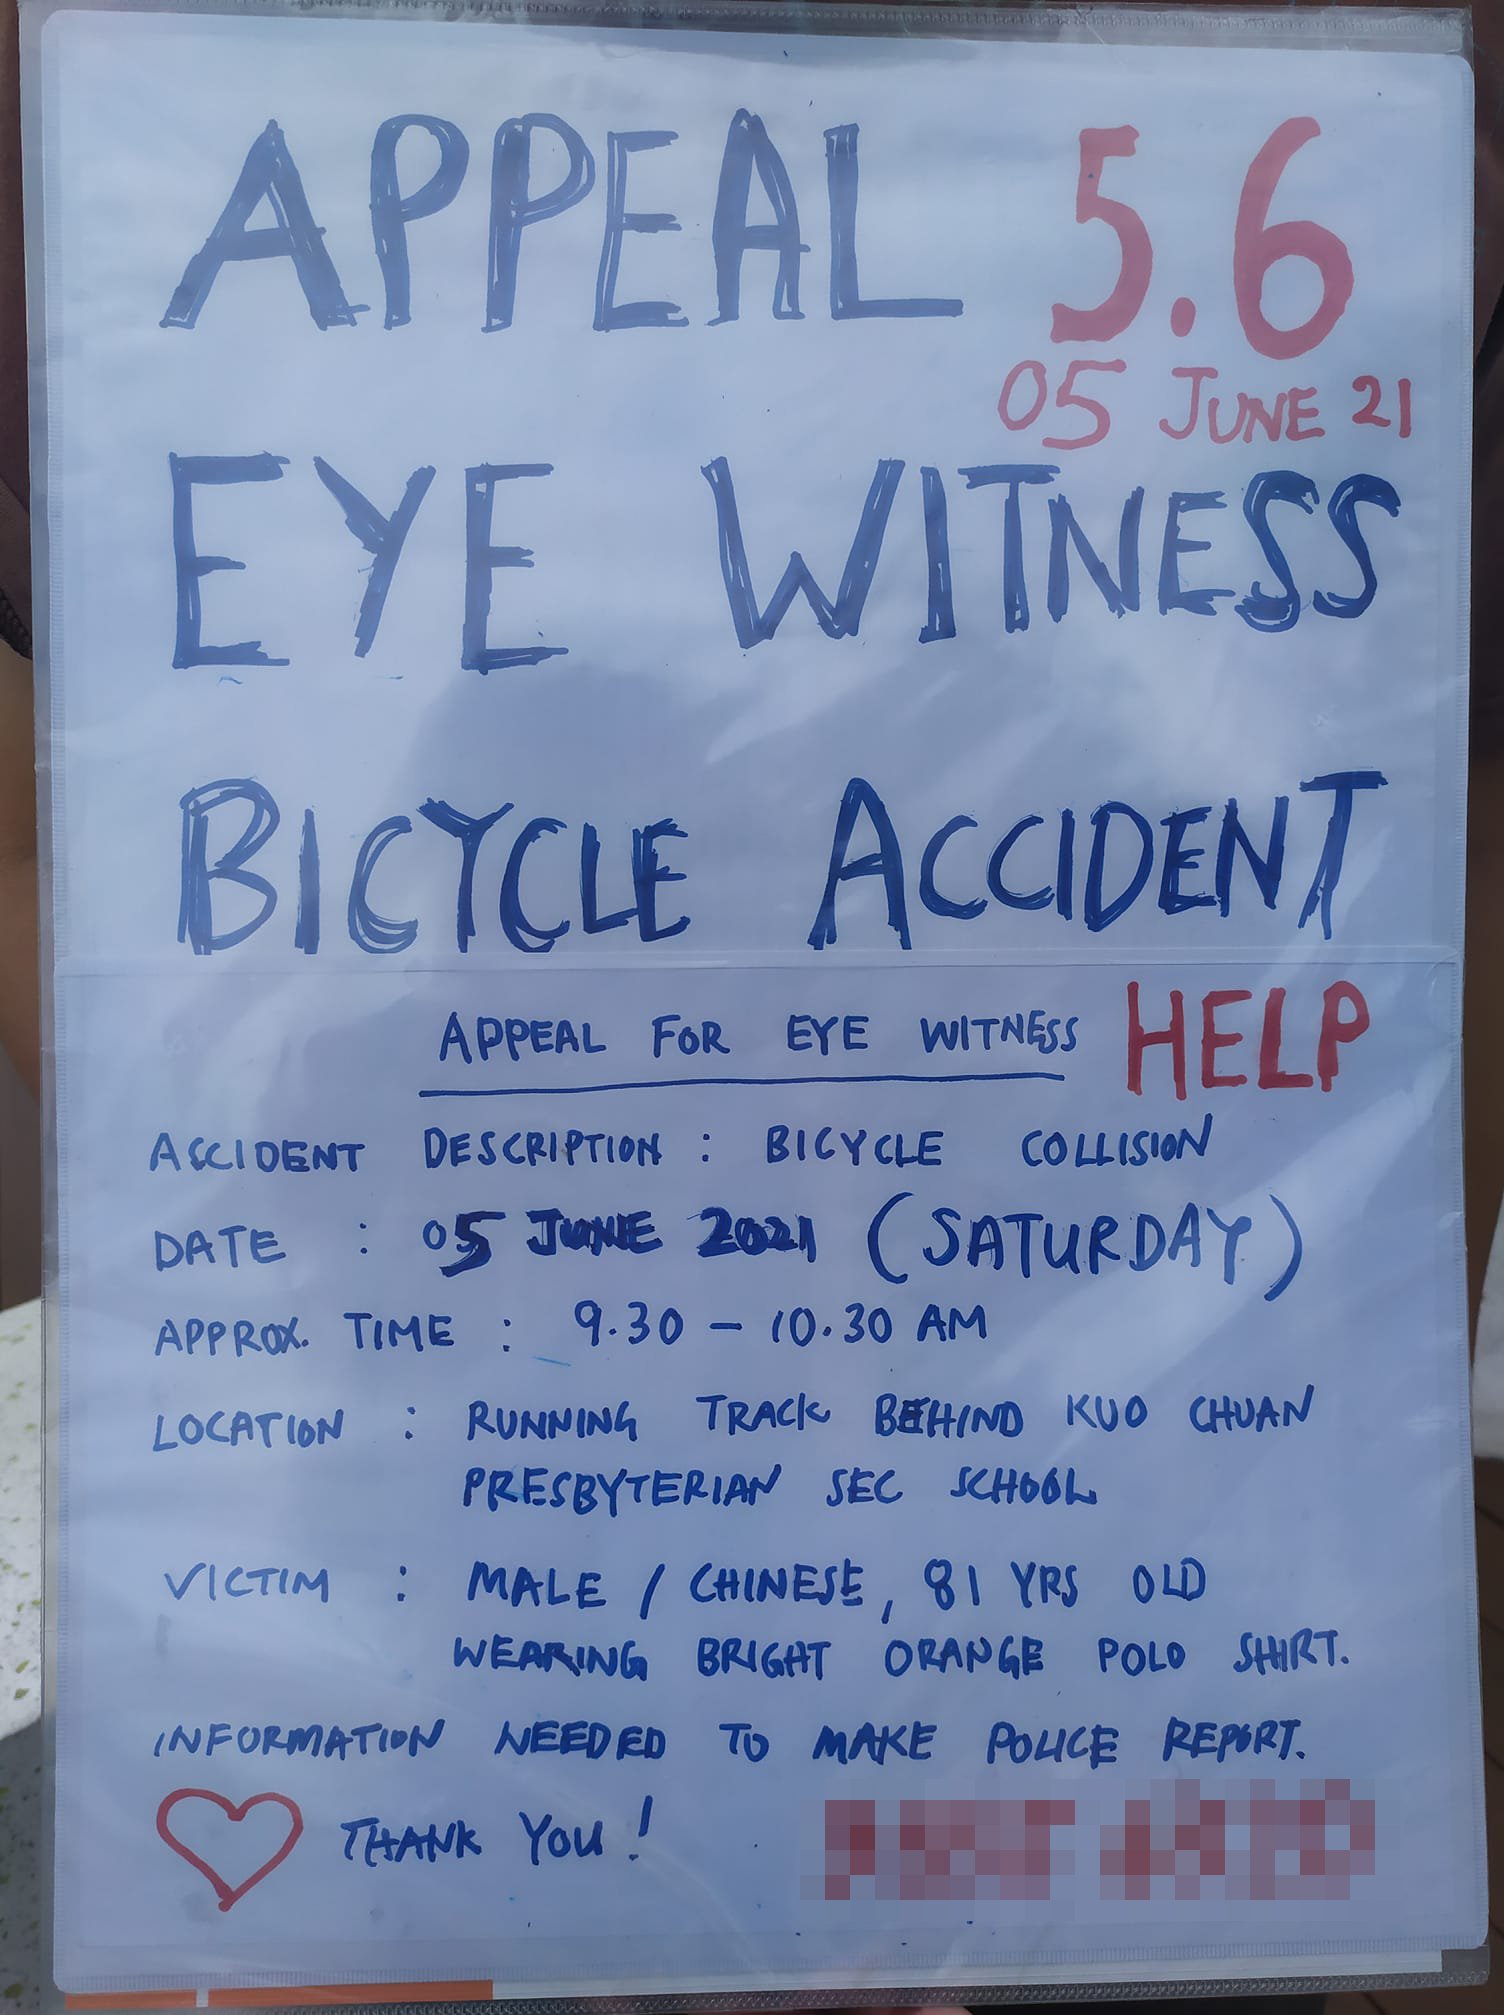 APPEAL 5.6
05 JUNE 21
EYE WITNESS
BICYCLE ACCIDENT
APPEAL FOR EYE WITNESS HELP
ACCIDENT DESCRIPTION : BICYCLE COLLISION
DATE : 05 JUNE 2021 (SATURDAY)
APPROX. TIME : 9.30 - 10.30 AM
LOCATION : RUNNING TRACK BEHIND KUO CHUAN
PRESBYTERIAN SEC SCHOOL
VICTIM : MALE / CHINESE, 81 YRS OLD
WEARING BRIGHT ORANGE POLO SHIRT.
INFORMATION NEEDED TO MAKE POLICE REPORT.
THANK YOU!